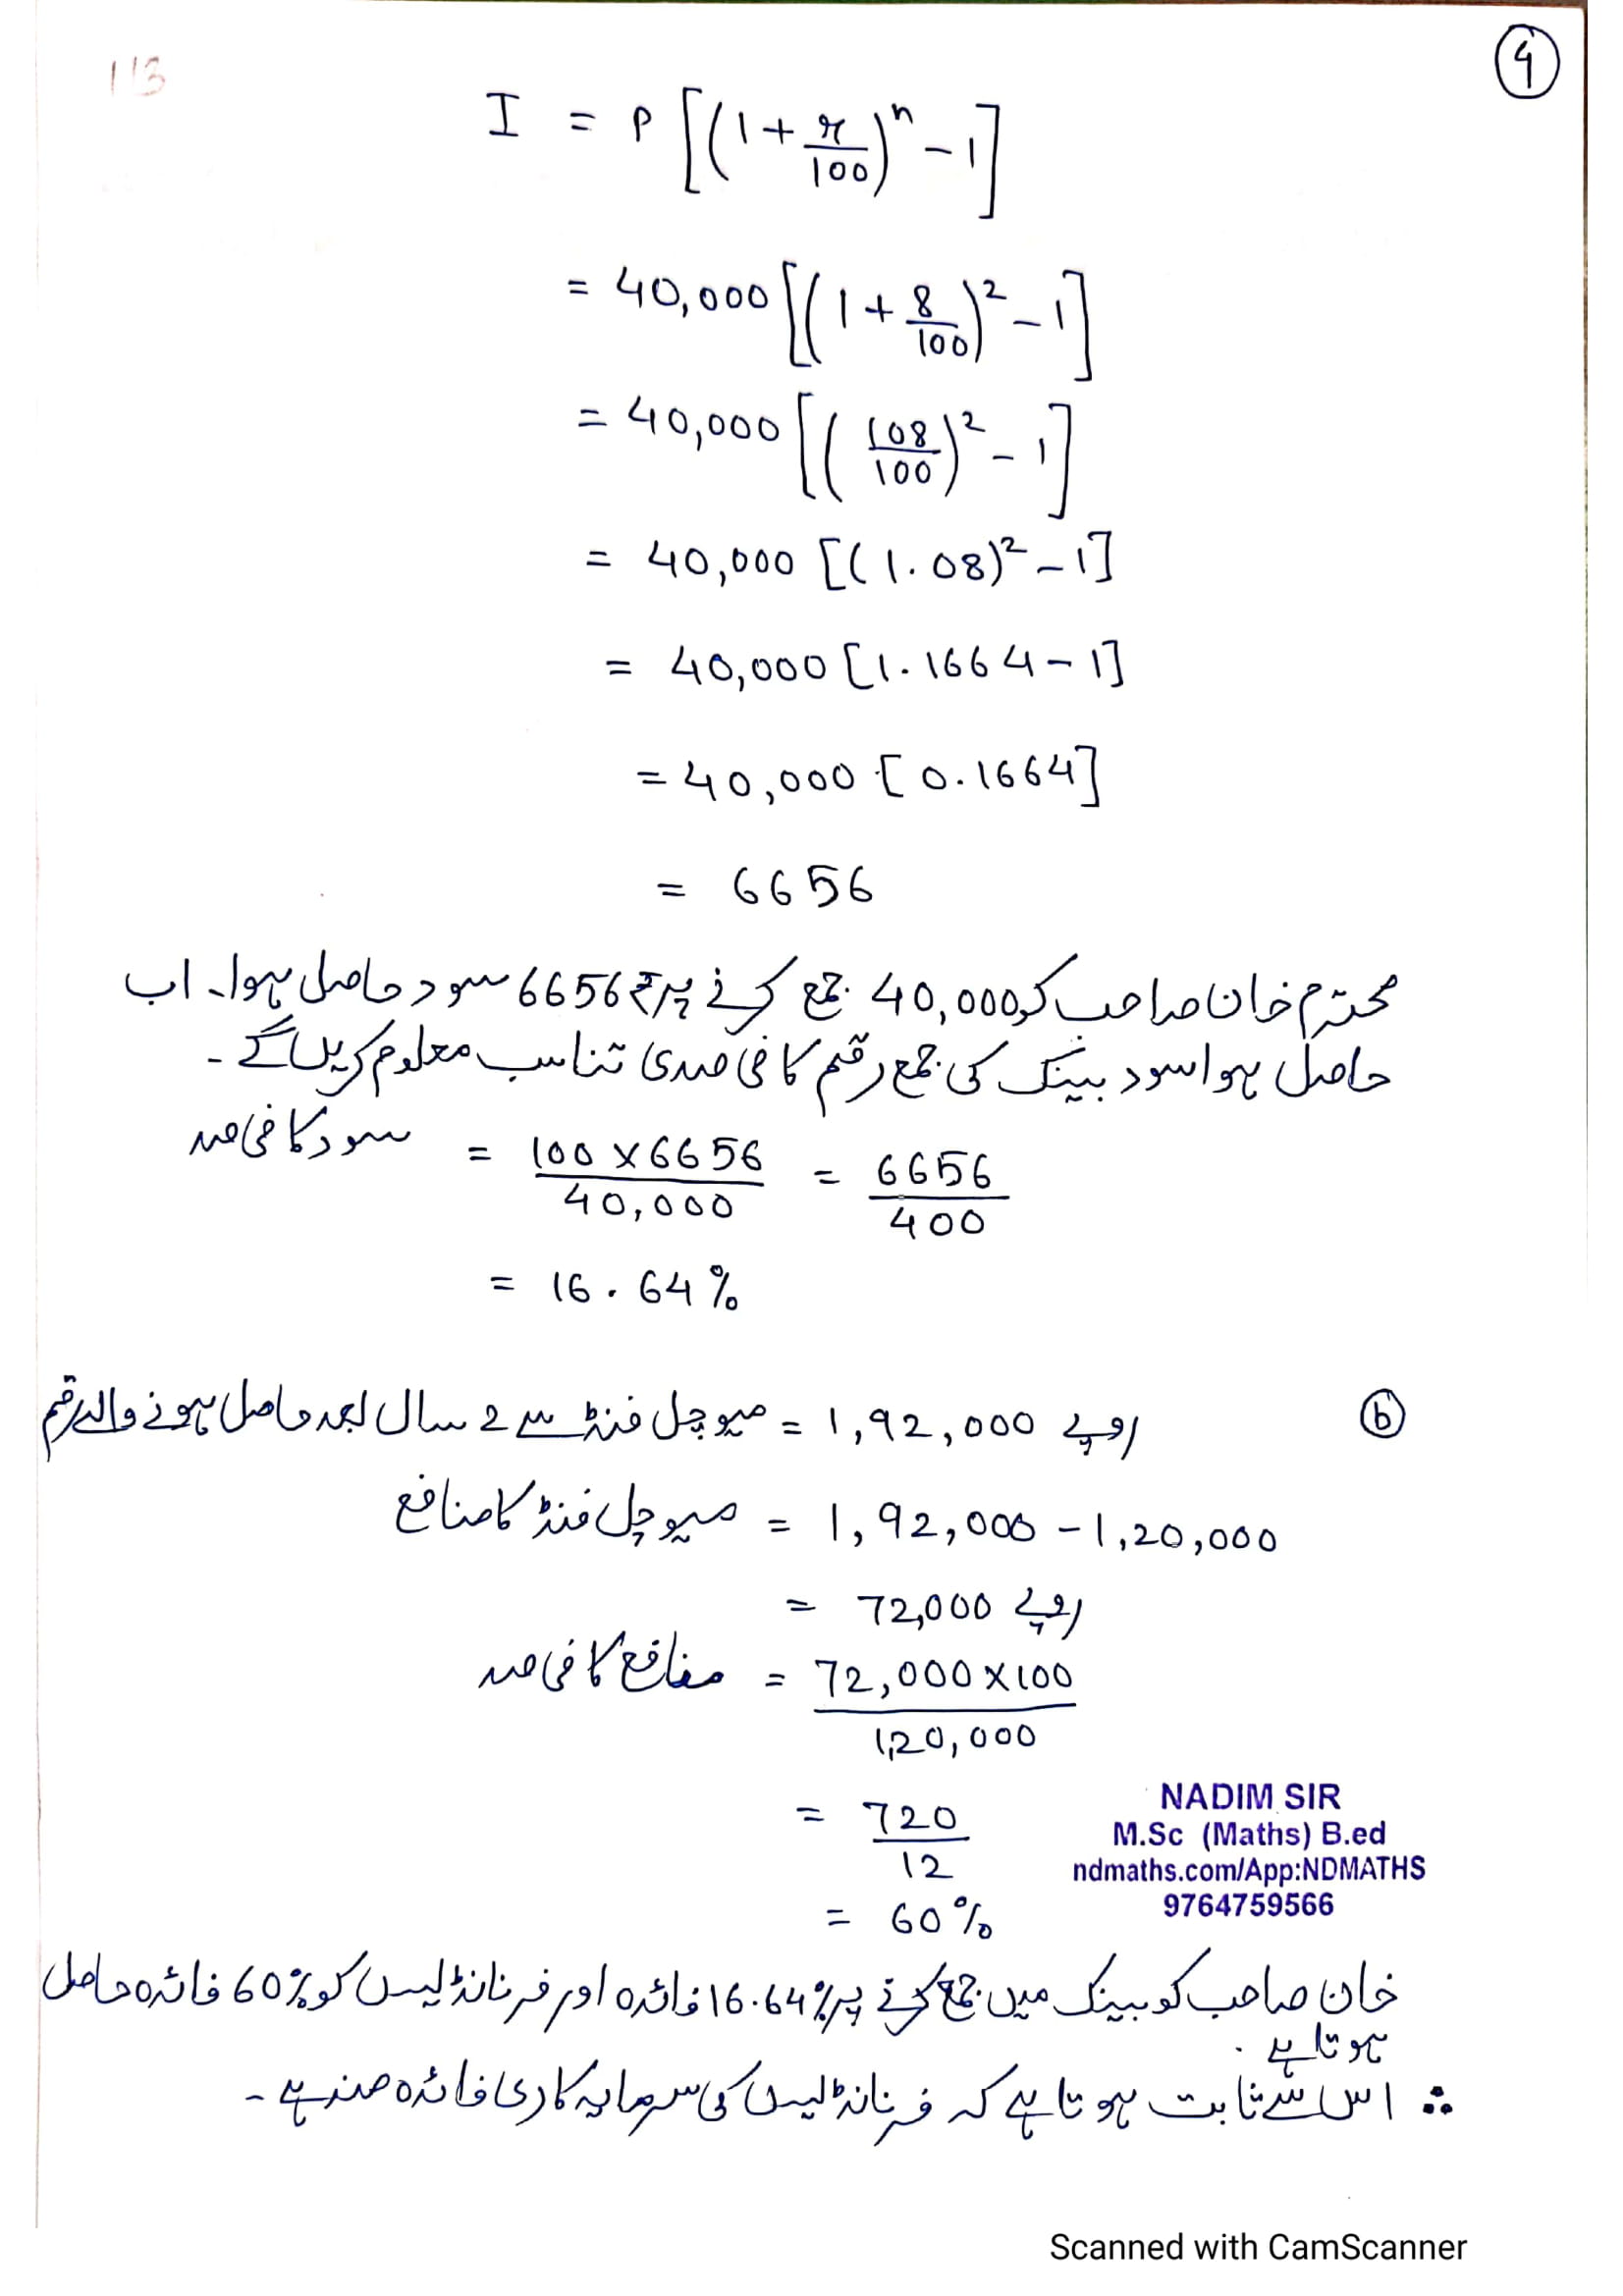 113
4
I = P [(1 + r/100)^n - 1]
= 40,000 [(1 + 8/100)^2 - 1]
= 40,000 [(108/100)^2 - 1]
= 40,000 [(1.08)^2 - 1]
= 40,000 [1.1664 - 1]
= 40,000 [0.1664]
= 6656
محترم خان صاحب کو 40,000 جمع کرنے پر ₹6656 سود حاصل ہوا۔ اب
حاصل ہوا سود بینک کی جمع رقم کا فی صدی تناسب معلوم کریں گے۔
سود کا فی صد = 100 × 6656 / 40,000 = 6656 / 400
= 16.64%
(b) روپے 1,92,000 = میوچل فنڈ سے 2 سال بعد حاصل ہونے والی رقم
میوچل فنڈ کا منافع = 1,92,000 - 1,20,000
= 72,000 روپے
منافع کا فی صد = 72,000 × 100 / 1,20,000
= 720 / 12
= 60%
NADIM SIR
M.Sc (Maths) B.ed
ndmaths.com/App:NDMATHS
9764759566
خان صاحب کو بینک میں جمع کرنے پر 16.64% فائدہ اور فرنانڈیس کو 60% فائدہ حاصل
ہوتا ہے.
∴ اس سے ثابت ہوتا ہے کہ فرنانڈیس کی سرمایہ کاری فائدہ مند ہے۔
Scanned with CamScanner